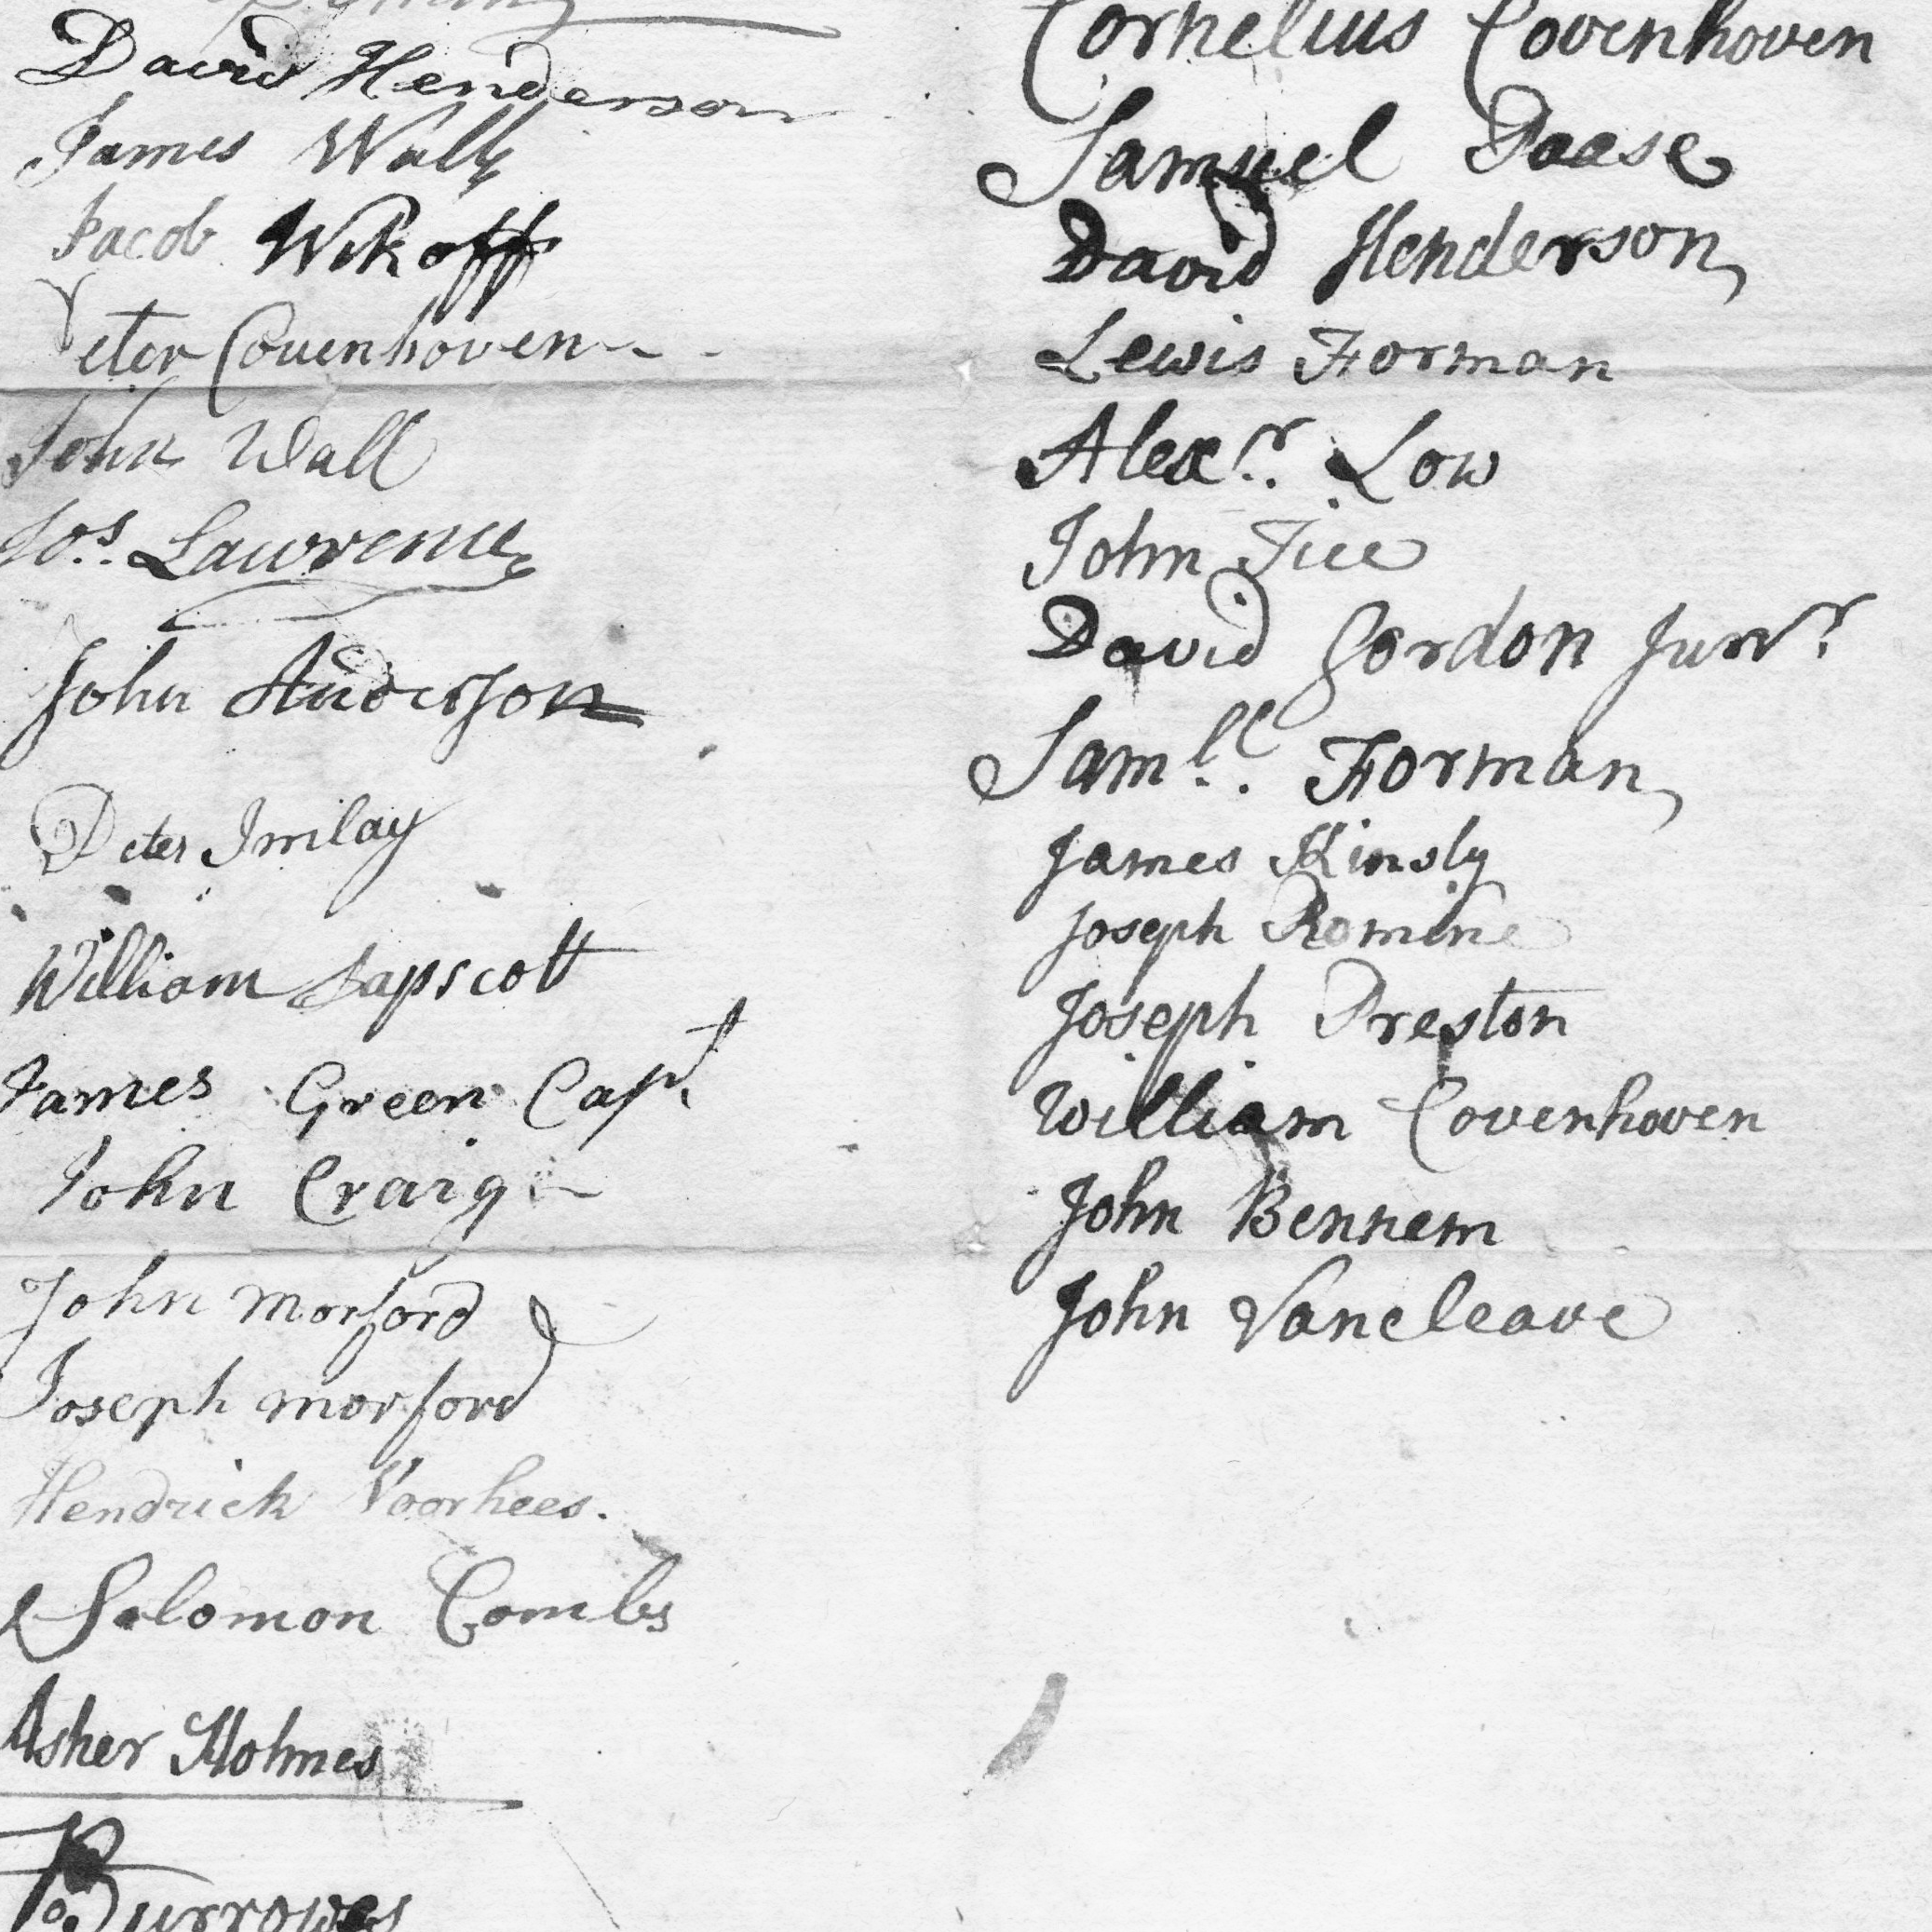 David Henderson
James Wall
Jacob Wikoff
Peter Covenhoven
John Wall
Jos. Lawrence
John Anderson
Peter Imlay
William Lapscott
James Green Capt
John Craig
John Morford
Joseph Morford
Hendrick Voorhees.
Solomon Combs
Asher Holmes
Burrowes
Cornelius Covenhoven
Samuel Pease
David Henderson
Lewis Forman
Alexr. Low
John Tice
David Gordon Junr.
Samll. Forman
James Kinsly
Joseph Romine
Joseph Preston
William Covenhoven
John Bennem
John Vancleave